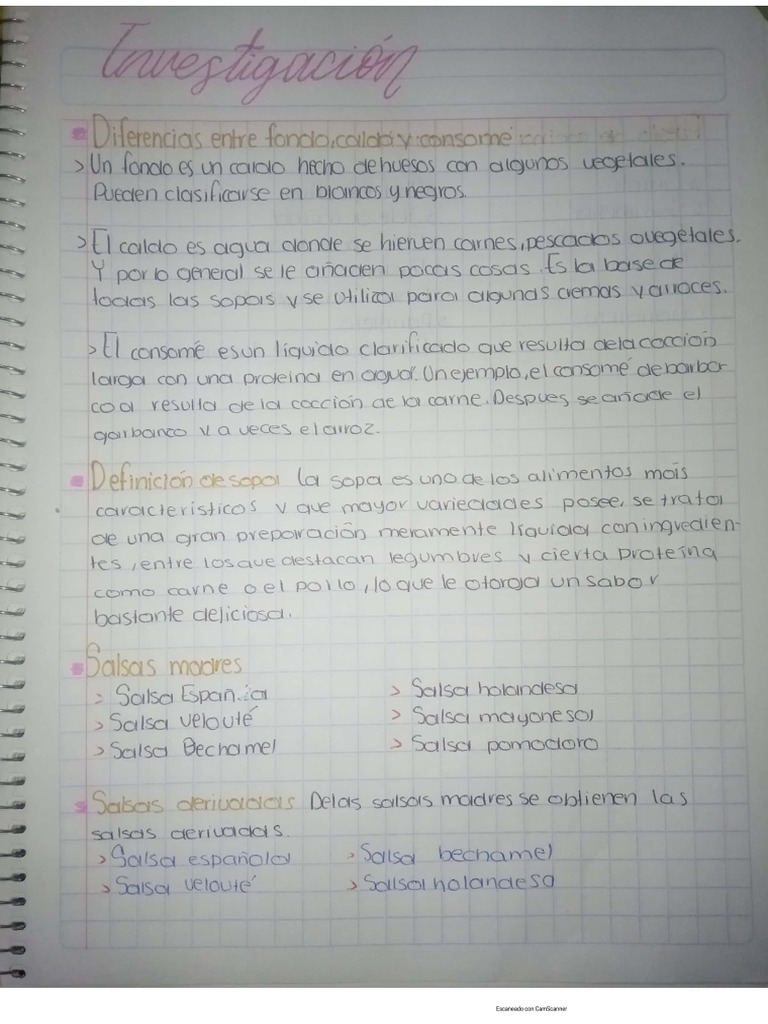 Investigación
Diferencias entre fondo, caldo y consomé
> Un fondo es un caldo hecho de huesos con algunos vegetales.
Pueden clasificarse en blancos y negros.
> El caldo es agua donde se hierven carnes, pescados o vegetales.
Y por lo general se le añaden pocas cosas. Es la base de
todas las sopas y se utiliza para algunas cremas y arroces.
> El consomé es un líquido clarificado que resulta de la cocción
larga con una proteína en agua. Un ejemplo, el consomé de barba-
coa resulta de la cocción de la carne. Despues se añade el
garbanzo y a veces el arroz.
Definición de sopa La sopa es uno de los alimentos más
característicos y que mayor variedades posee, se trata
de una gran preparación meramente líquida con ingredien-
tes, entre los que destacan legumbres y cierta proteína
como carne o el pollo, lo que le otorga un sabor
bastante deliciosa.
Salsas madres
> Salsa Española > Salsa holandesa
> Salsa velouté > Salsa mayonesa
> Salsa Bechamel > Salsa pomodoro
Salsas derivadas De las salsas madres se obtienen las
salsas derivadas.
> Salsa española > Salsa bechamel
> Salsa velouté > Salsa holandesa
Escaneado con CamScanner